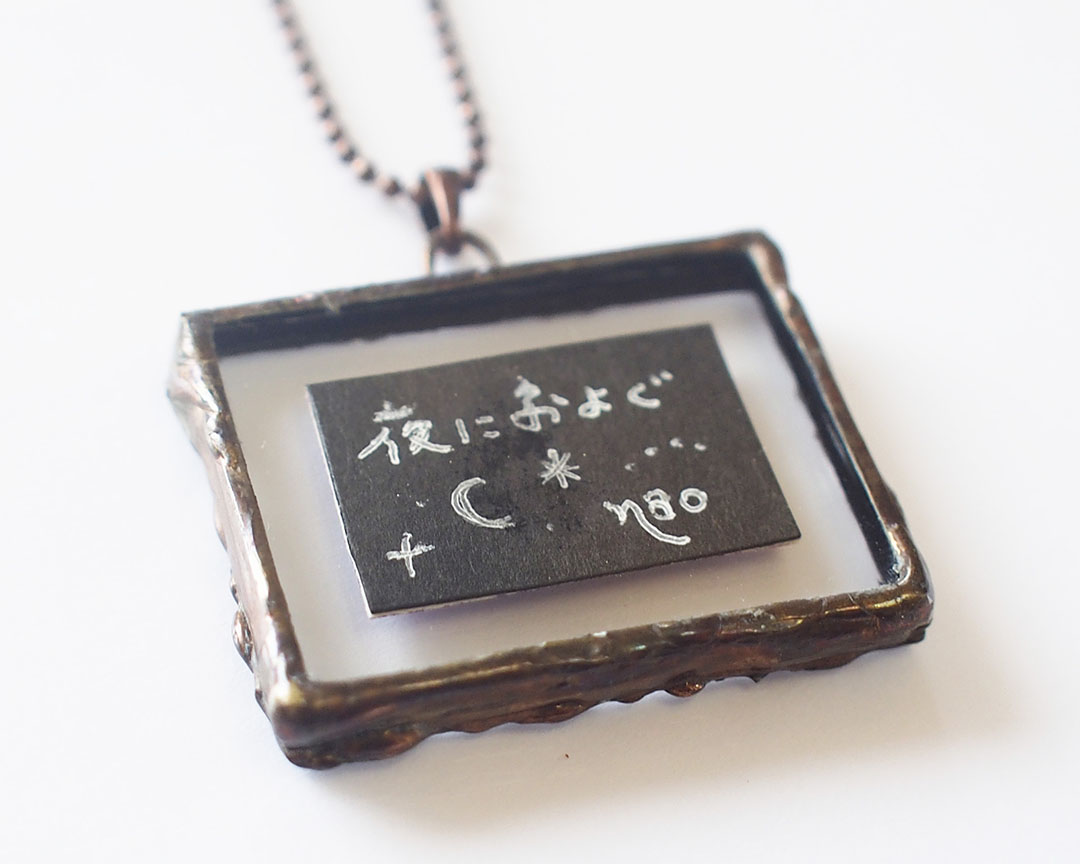 夜におよぐ
nao